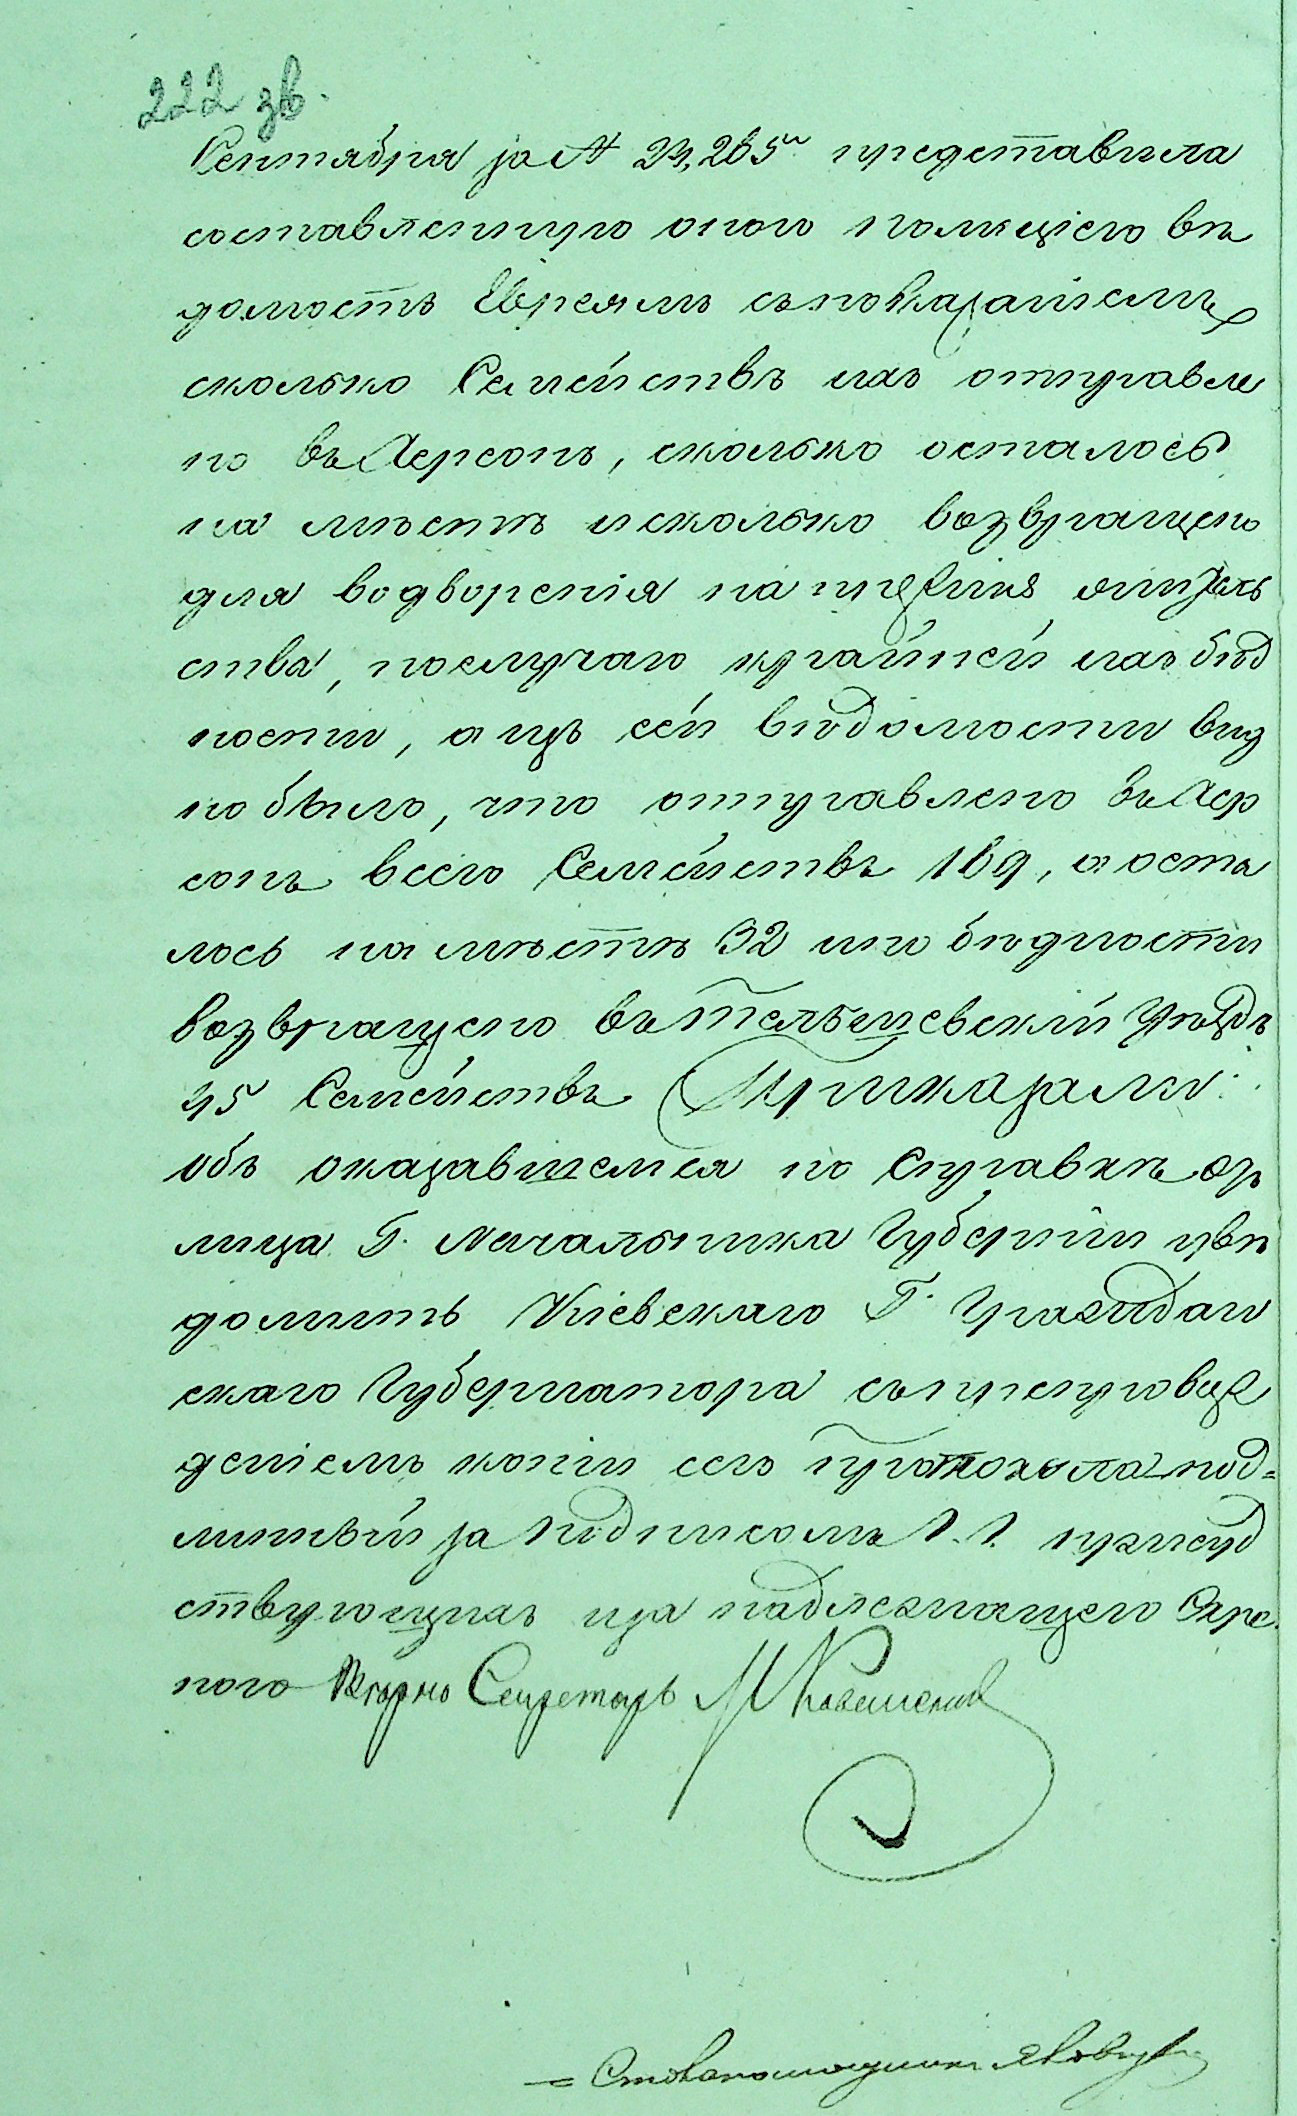 222 зв.
Сентября за № 24,265м представила
составленную оною полициею вѣ
домость Евреямъ съ показаніемъ
сколько Семействъ ихъ отправле
но въ Херсонъ, сколько осталось
на мѣстѣ и сколько возвращено
для водворенія на прежнія жительъ
ства, по случаю крайней ихъ бѣд
ности, а изъ сей вѣдомости вид
но было, что отправлено въ Хер
сонъ всего Семействъ 169, а оста
лось на мѣстѣ 32 и по бѣдности
возвращено въ Тельшевскій Уѣздъ
45 Семействъ Приказали:
объ оказавшемся по справкѣ отъ
лица Г. Начальника Губерніи увѣ
домить Кіевскаго Г. Граждан
скаго Губернатора съ препровож
деніемъ копіи сего протокола под=
линный за подписомъ Г.Г. присуд
ствующихъ и за надлежащего Скре
пого Вѣрно Секретарь М
= Столоначальникъ